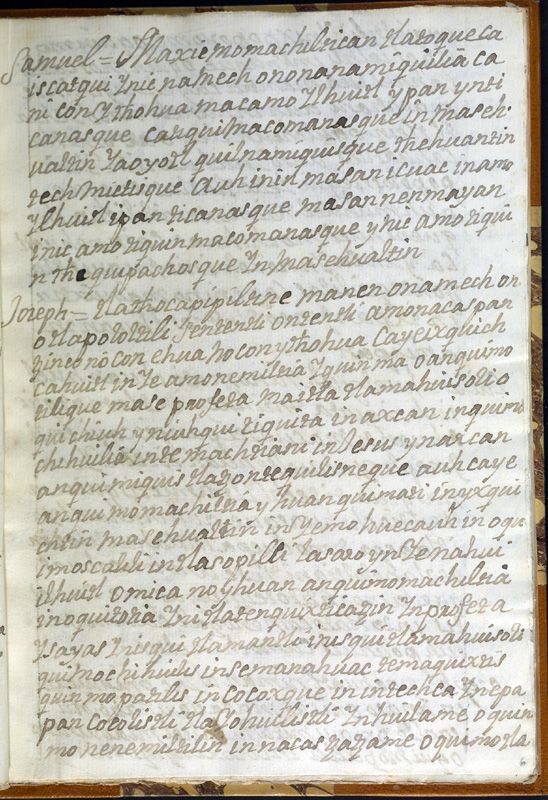 Samuel = Maxiemomachiltican tlatoque ca
is catqui ynic namech ononanamiquilia ca
ni con ythohua macamo ylhuitl ypan ynti
canasque catqui macomanasque in maseh
ualtin yaoyotl quilnamiquisque thehuantin
tech mictisque Auh inin masan icuac inamo
ylhuitl ipan ticanasque masannenmayan
inic amo tiquin macomanasque ynic amo tiqui
n thequipachosque yn masehualtin
Joseph = tlathocapipiltine manen onamech on
otlapololtili sentetl ontentli amonacaspan
tzinco no con ehua ho con ythohua Ca yeixquich
cahuitl in ye amonemiltia yquin ma o anquimo
tilique mase profeta maitla tlamahuisoltio
quichiuh yniuhqui tiquita in axcan inquimo
chihuilia intemachtiani in Jesus ynaxcan
anquimiquistlatzontequilisneque auh caye
anquimomachiltia yhuan quimati inyxqui
chtin masehualtin inyemo huecauh inoqu
imoscalili intlasopilli Lasaro ynyenahui
ilhuitl omica no yhuan anquimomachiltia
inoquitotia ynitlatenquixticatzin ynprofeta
ysayas ynisqui tlamantli inisqui tlamahuisolli
quimochihuilis insemanahuac temaquixtis
quinmopatilis in cocoxque in intechca ynepa
pan cocolistli tlacohuilistli ynhuilame oquin
monenemiltilin innacastzatzame oquimotla